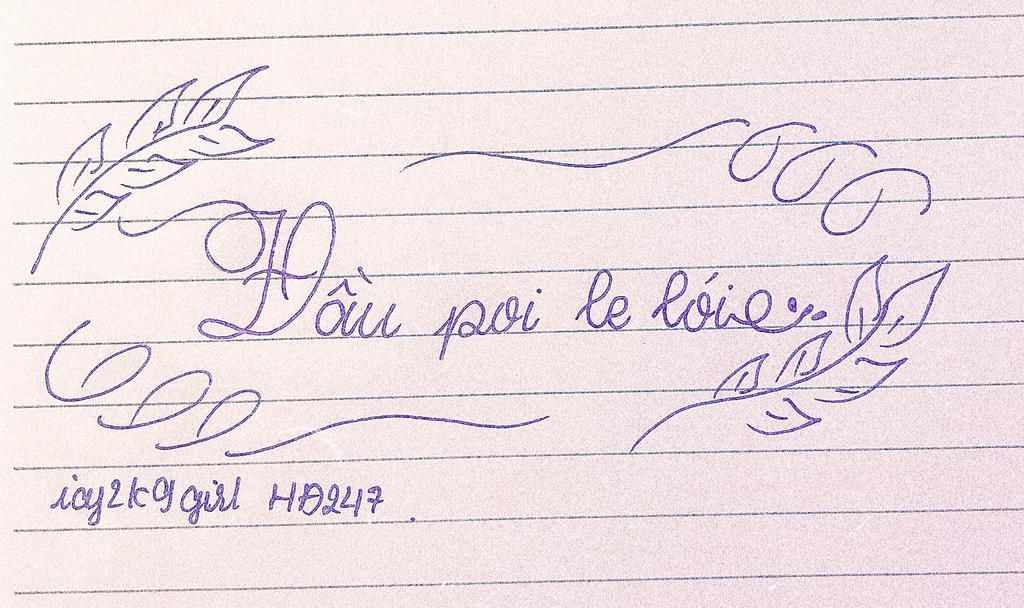 Dầu poi le lói
icy2k9girl HĐ247